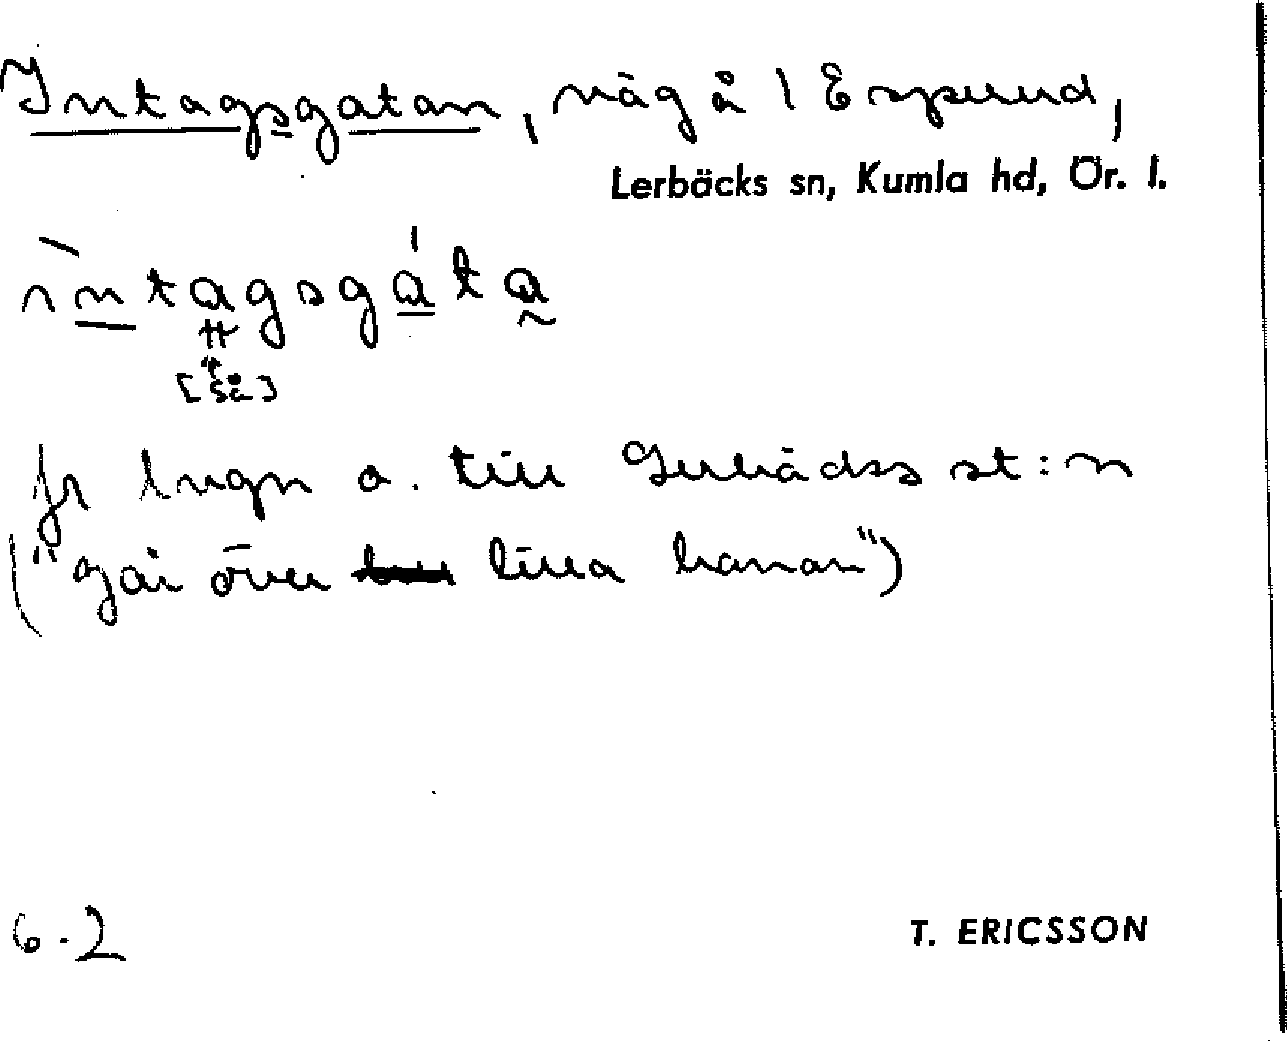 Intagsgatan, väg å 1 Espelund,
Lerbäcks sn, Kumla hd, Ör. l.
ìntagsgáta
["så"]
fr lugn o. till Lerbäcks st:n
("går över lilla banan")
6.2
T. ERICSSON